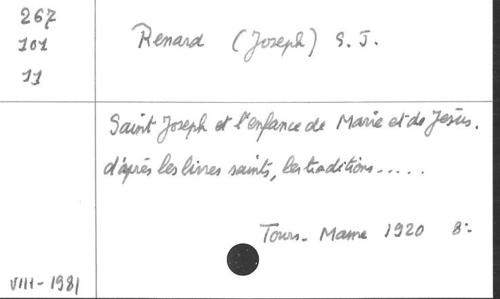 267
101
11
Renard (Joseph) S. J.
Saint Joseph et l'enfance de Marie et de Jésus.
d'après les livres saints, les traditions.....
Tours. Mame 1920 8:
VIII - 1981